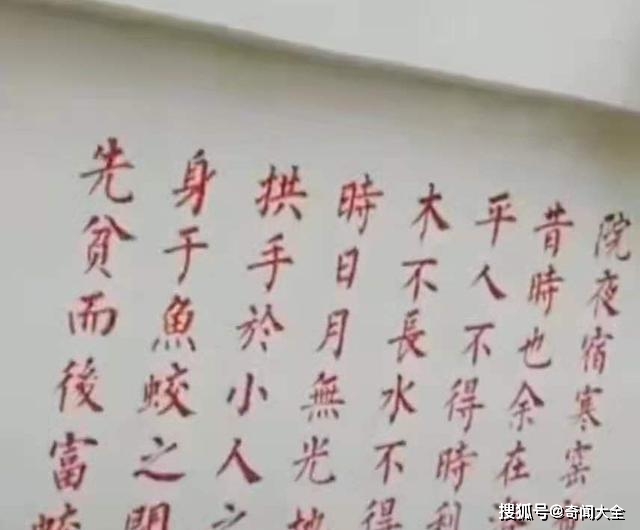 院夜宿寒窑
昔時也余在
平人不得時利
木不長水不得
時日月無光地
拱手於小人之
身于魚蛟之間
先貧而後富
搜狐号@奇闻大全